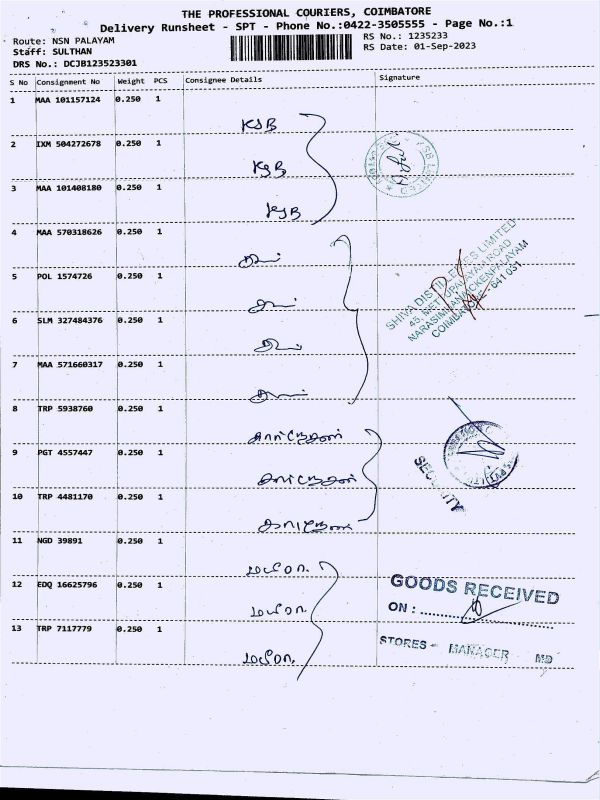 THE PROFESSIONAL COURIERS, COIMBATORE
Delivery Runsheet - SPT - Phone No.:0422-3505555 - Page No.:1
Route: NSN PALAYAM
RS No.: 1235233
Staff: SULTHAN
RS Date: 01-Sep-2023
DRS No.: DCJB123523301
S No Consignment No Weight PCS Consignee Details Signature
1 MAA 101157124 0.250 1
KSB
2 IXM 504272678 0.250 1
KSB
3 MAA 101408180 0.250 1
KSB
4 MAA 570318626 0.250 1
SHIVA DISTILLERIES LIMITED
45, METTUPALAYAM ROAD
NARASIMANAICKENPALAYAM
COIMBATORE - 641 031
5 POL 1574726 0.250 1
6 SLM 327484376 0.250 1
7 MAA 571660317 0.250 1
8 TRP 5938760 0.250 1
9 PGT 4557447 0.250 1
SECURITY
10 TRP 4481170 0.250 1
11 NGD 39891 0.250 1
GOODS RECEIVED
12 EDQ 16625796 0.250 1
ON :
13 TRP 7117779 0.250 1
STORES - MANAGER MD